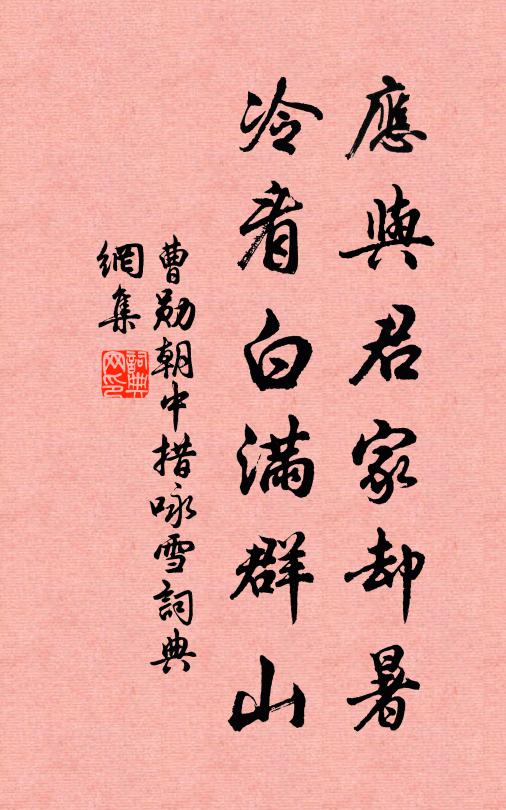 應與君家却暑
冷看白满群山
曹勋朝中措咏雪詞典
網集
詞典
网印